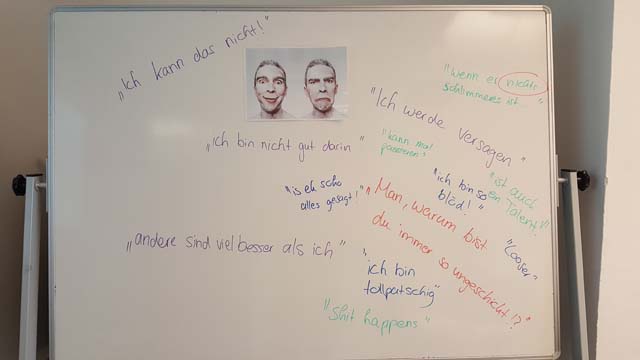 „Ich kann das nicht!"
"wenn es nichts
schlimmeres ist... "
„Ich werde versagen"
„ich bin nicht gut darin"
"kann mal
passieren"
"is eh scho
alles gesagt!"
"ich bin so
blöd!"
"ist auch
ein Talent!"
"Man, warum bist
du immer so ungeschickt!?
"Looser"
„andere sind viel besser als ich"
"ich bin
tollpatschig"
"shit happens"